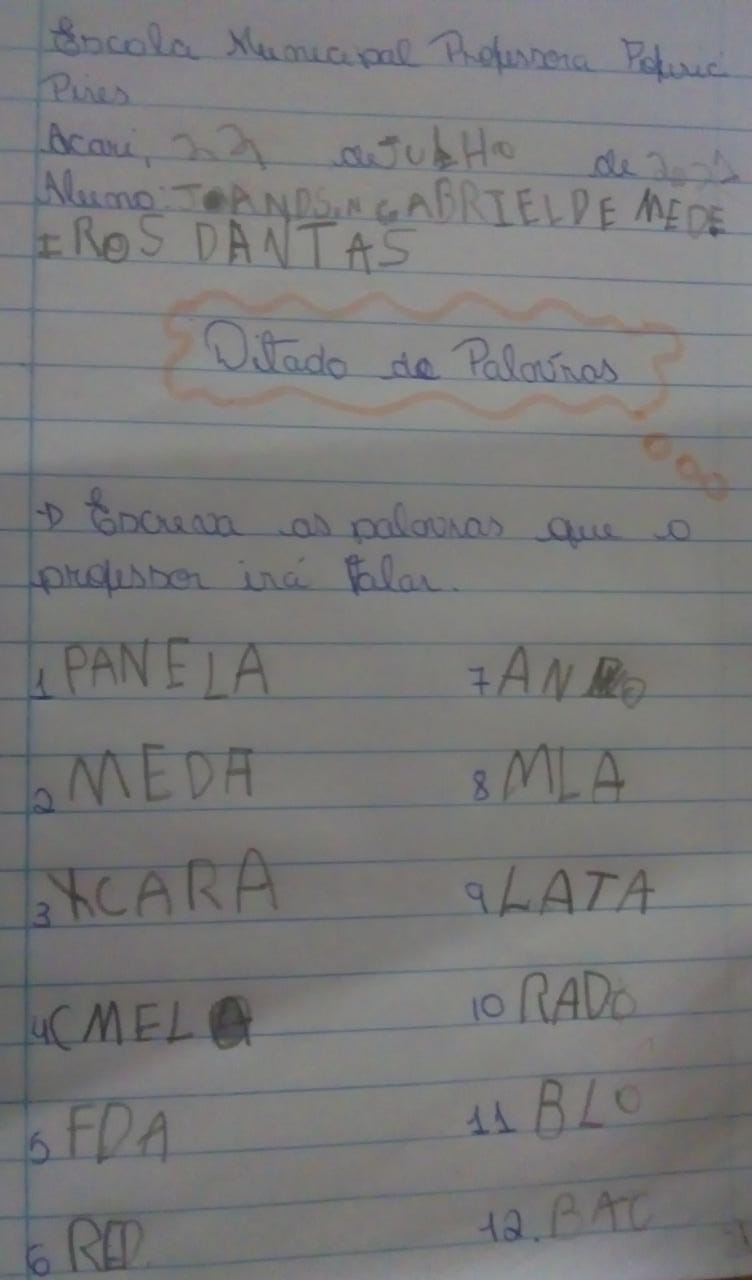 Escola Municipal Professora
Pires
Acari, 22 de JULHO de
Aluno: GABRIEL DE MEDE
IROS DANTAS
Ditado de Palavras
→ Escreva as palavras que o
professor irá falar.
1 PANELA 7 AN O
2 MEDA 8 MLA
3 XCARA 9 LATA
4 CMEL 10 RADO
5 FDA 11 BLO
6 RED 12. BAC